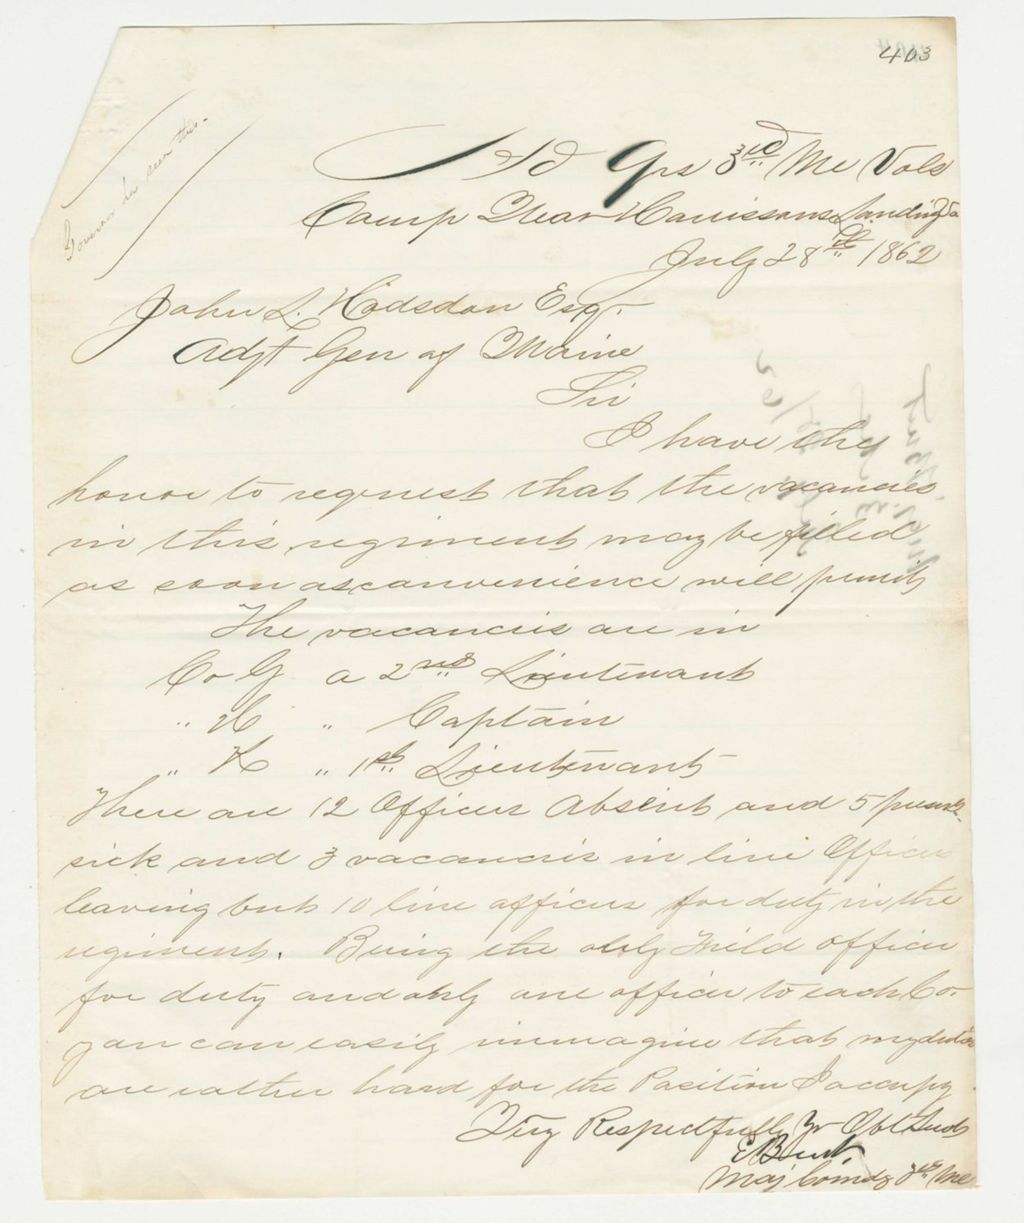 403
Governor has seen this.
Hd Qrs 3rd Me Vols
Camp Near Harrisons Landing Va
July 28th 1862
John L. Hodsdon Esq.
Adjt Gen of Maine
Sir
I have the
honor to request that the vacancies
in this regiment may be filled
as soon as convenience will permit
The vacancies are in
Co G a 2nd Lieutenant
" H " Captain
" K " 1st Lieutenant
There are 12 Officers Absent and 5 present
sick and 3 vacancies in line Officers
leaving but 10 line officers for duty in the
regiment. Being the only Feild officer
for duty and only one officer to each Co.
you can easily immagine that my duties
are rather hard for the Position I occupy
Very Respectfully Yr Obt Servt
E Burt.
Maj Comdg 3rd Me